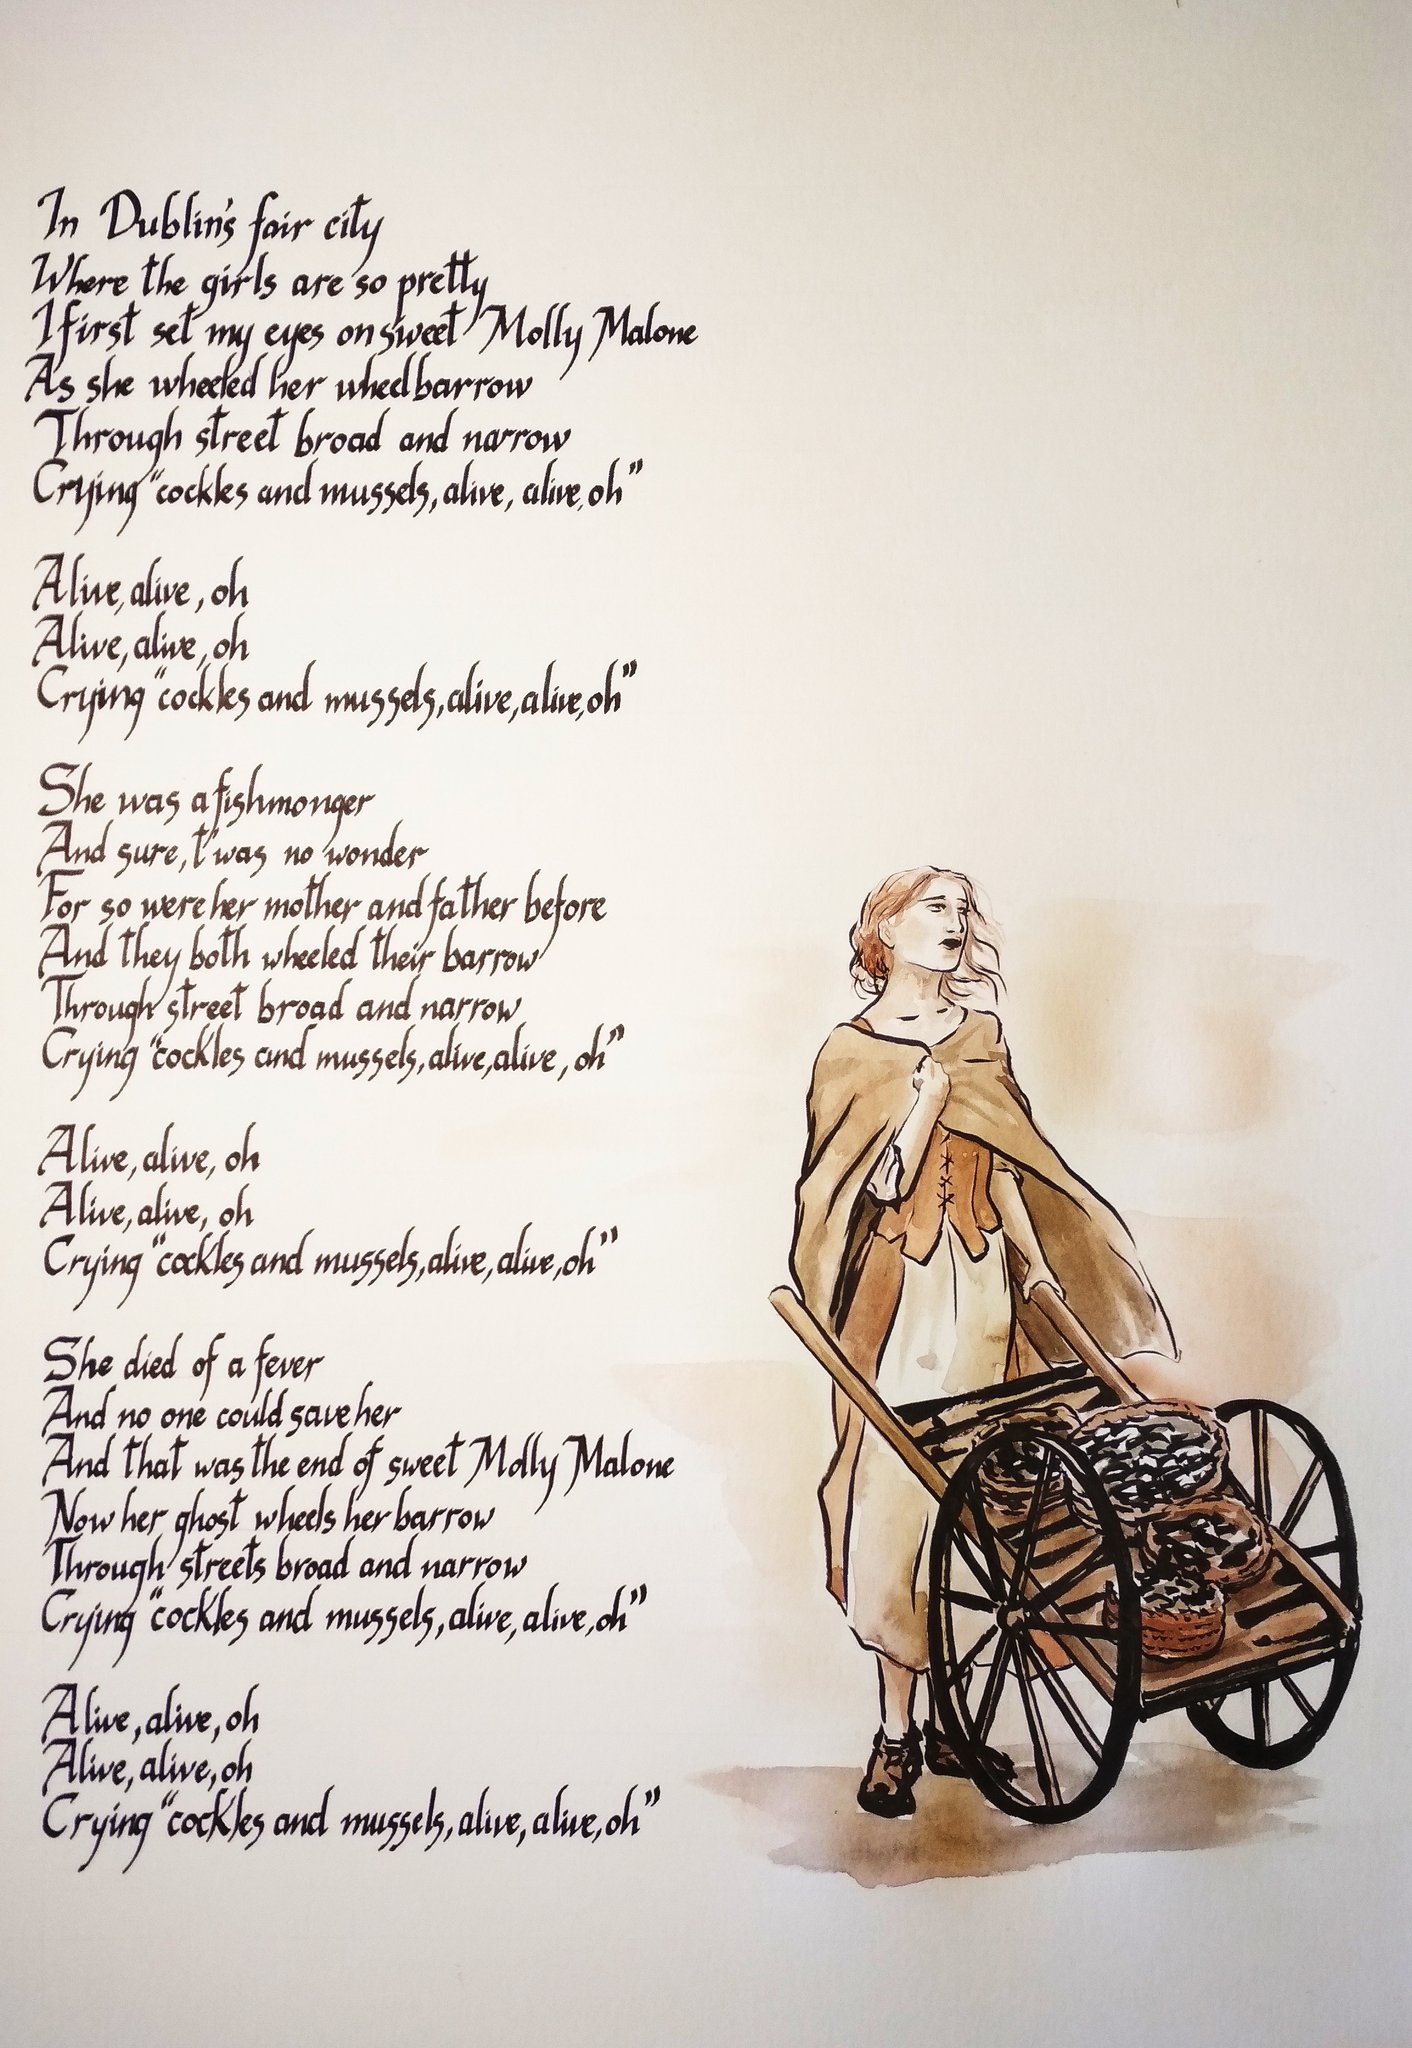 In Dublin's fair city
Where the girls are so pretty
I first set my eyes on sweet Molly Malone
As she wheeled her wheelbarrow
Through street broad and narrow
Crying "cockles and mussels, alive, alive, oh"
Alive, alive, oh
Alive, alive, oh
Crying "cockles and mussels, alive, alive, oh"
She was a fishmonger
And sure, t'was no wonder
For so were her mother and father before
And they both wheeled their barrow
Through street broad and narrow
Crying "cockles and mussels, alive, alive, oh"
Alive, alive, oh
Alive, alive, oh
Crying "cockles and mussels, alive, alive, oh"
She died of a fever
And no one could save her
And that was the end of sweet Molly Malone
Now her ghost wheels her barrow
Through streets broad and narrow
Crying "cockles and mussels, alive, alive, oh"
Alive, alive, oh
Alive, alive, oh
Crying "cockles and mussels, alive, alive, oh"